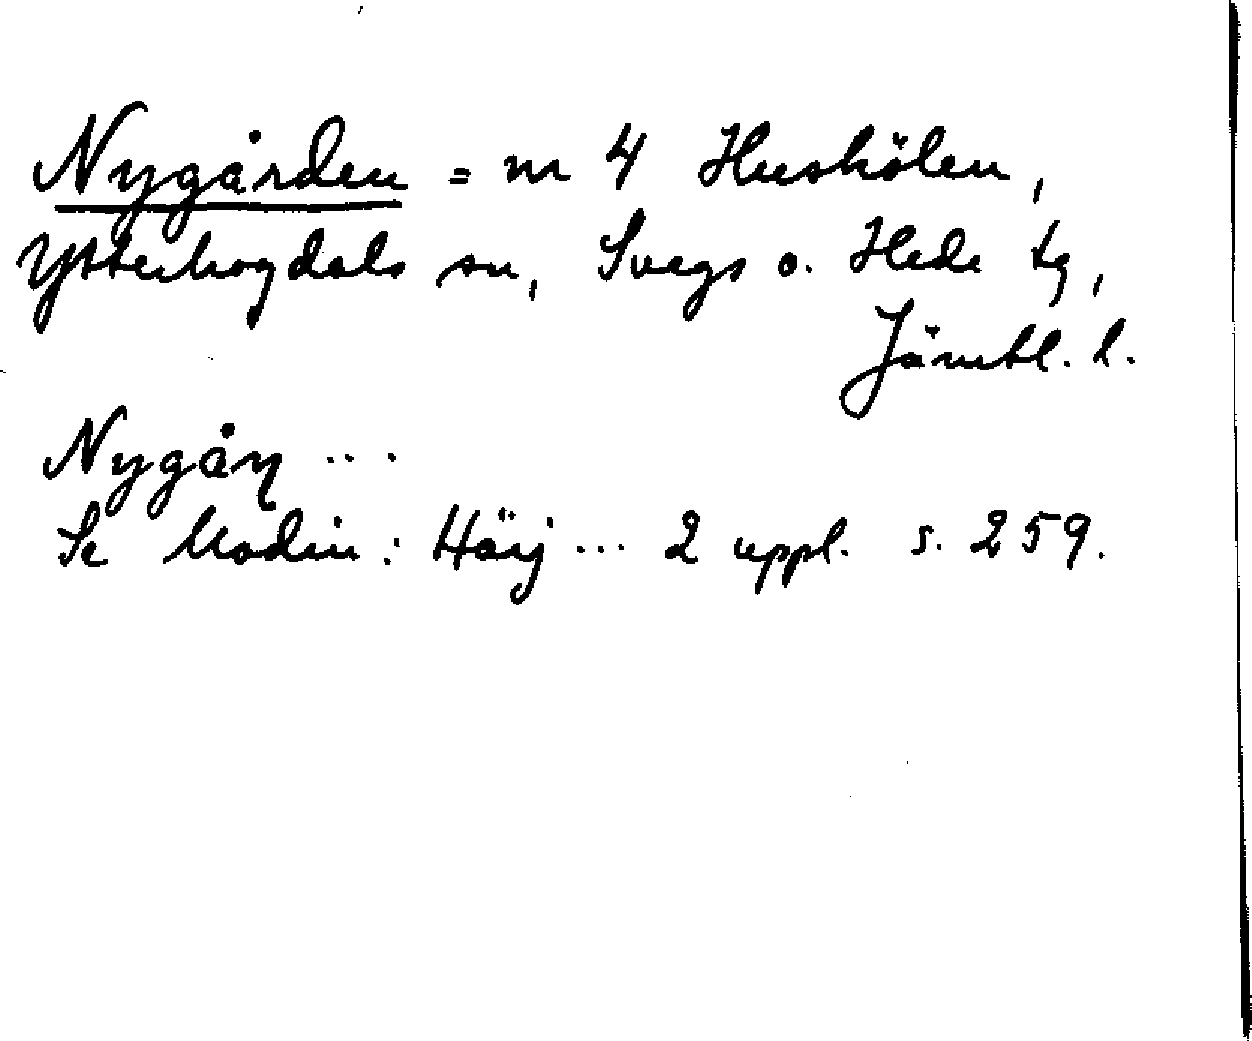 Nygården = nr 4 Huskölen,
Ytterhogdals sn, Svegs o. Hede tg,
Jämtl. l.
Nygåɳ ...
Se Modin: Härj ... 2 uppl. s. 259.